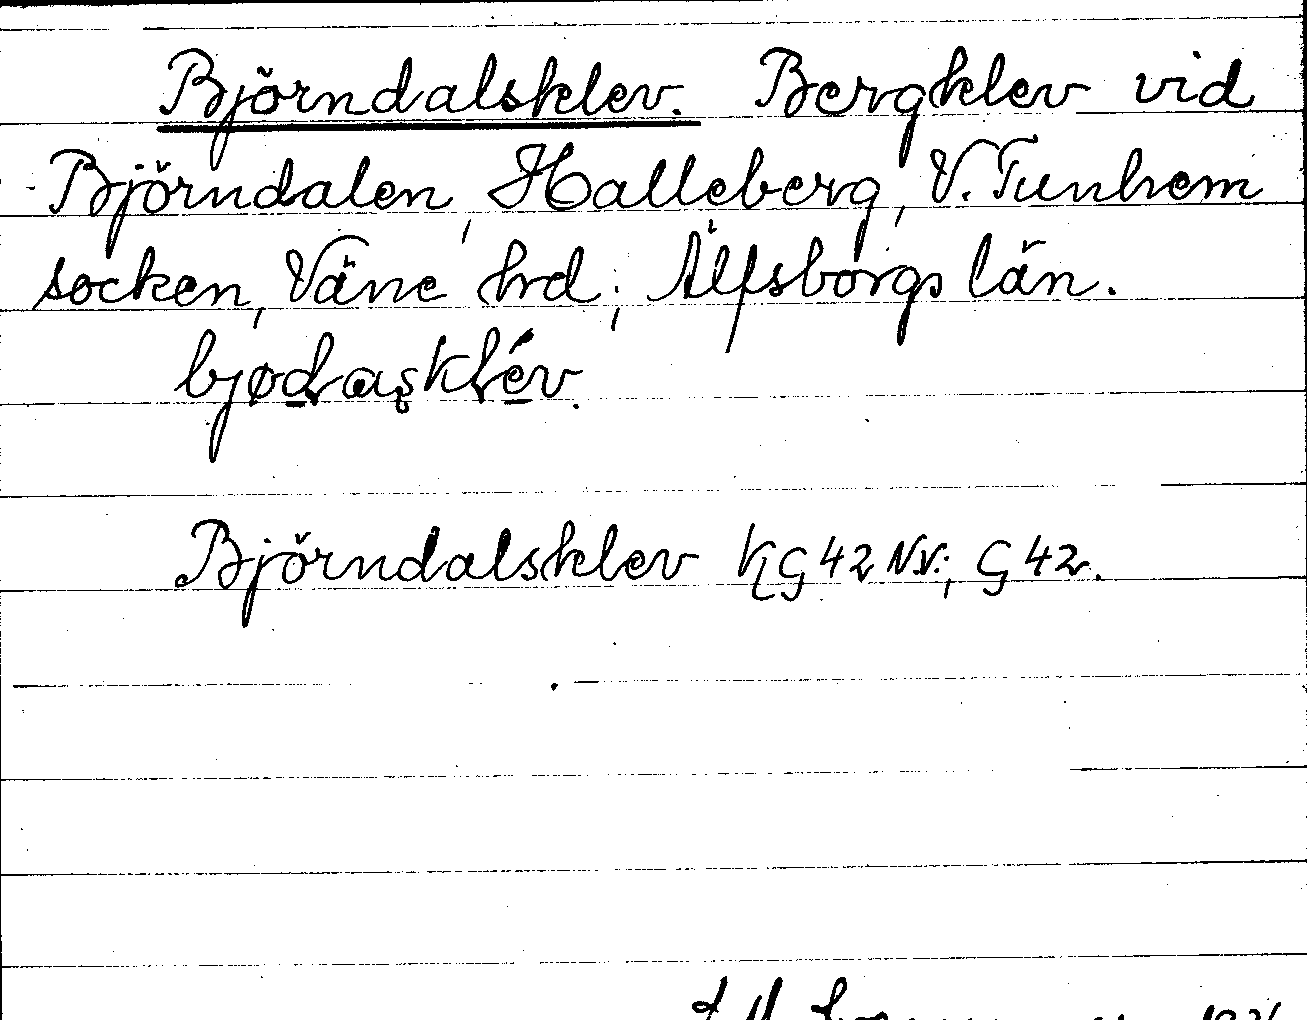 Björndalsklev. Bergklev vid
Björndalen, Halleberg, V. Tunhem
socken, Väne hrd; Älfsborgs län.
bjødasklév.
Björndalsklev KG 42 NV.; G 42.